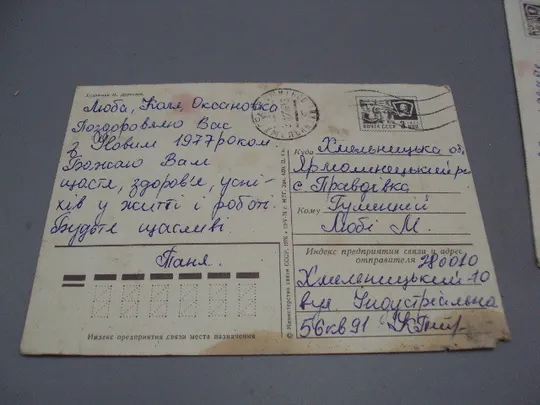 Люба, Коля, Оксаночко
Поздоровляю Вас
з Новим 1977 роком
Бажаю Вам
щастя, здоров'я, успі-
хів у житті і роботі.
Будьте щасливі
Таня.
Индекс предприятия связи места назначения
© Министерство связи СССР, 1976
ПОЧТА СССР
Куда Хмельницька об.
Ярмолинецький р-н
с Правдівка
Кому Гумецкій
Любі М.
Индекс предприятия связи и адрес
отправителя 280010
Хмельницький-10
вул. Індустріальна
56 кв 91